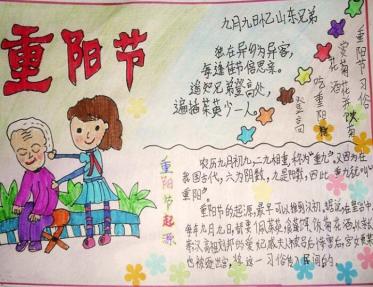 重阳节
九月九日忆山东兄弟
独在异乡为异客，
每逢佳节倍思亲。
遥知兄弟登高处，
遍插茱萸少一人。
重阳节习俗
赏菊花
吃重阳
登高
重阳节起源
农历九月初九，二九相重，称为“重九”，又因为在
我国古代，六为阴数，九是阳数，因此
重九就叫“
重阳”。
重阳节的起源，最早可以推到汉初，据说，在皇宫中，
每年九月九日，都要佩茱萸
饮菊花酒
汉高祖刘邦的爱妃戚夫人被吕后惨害后，宫女贾某
也被逐出宫，将这一习俗传入民间的